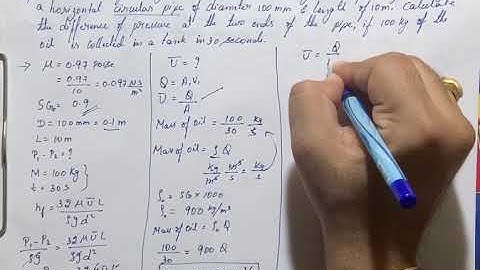 a horizontal circular pipe of diameter 100mm & length of 10m. Calculate
the difference of pressure at the two ends of the pipe, if 100 kg of the
oil is collected in a tank in 30 seconds.
→ μ = 0.97 poise
= 0.97/10 = 0.097 NS/m²
SGo = 0.9
D = 100mm = 0.1m
L = 10m
P₁-P₂ = ?
M = 100kg }
t = 30s }
hf = 32 μ Ū L / ρg d²
P₁-P₂ / ρg = 32 μ Ū L / ρg d²
Ū = ?
Q = A₁V₁
Ū = Q/A
Mass of oil = 100/30 kg/s
Mass of oil = ρ₀ Q
kg/s = kg/m³ m³/s
ρ₀ = SG × 1000
ρ₀ = 900 kg/m³
Mass of oil = ρ₀ Q
100/30 = 900 Q
Ū = Q